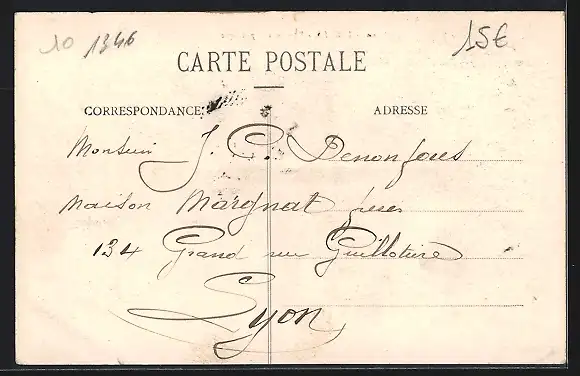 10 1346 15€
CARTE POSTALE
CORRESPONDANCE ADRESSE
Monsieur J. C. Denonfoux
Maison Margnat frères
134 Grand rue Guillotière
Lyon